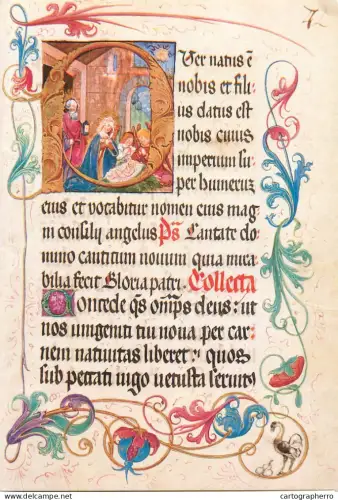 7
Puer natus ē
nobis et fili
us datus est
nobis cuius
imperium su
per humeruȝ
eius et vocabitur nomen eius mag
ni consilij angelus Ps̄ Cantate do
mino canticum nouum quia mira
bilia fecit Gloria patri. Collecta
Concede q̄s om̄ps deus: ut
nos unigeniti tui noua per car
nem natiuitas liberet: quos
sub peccati iugo vetusta seruit
cartographerro